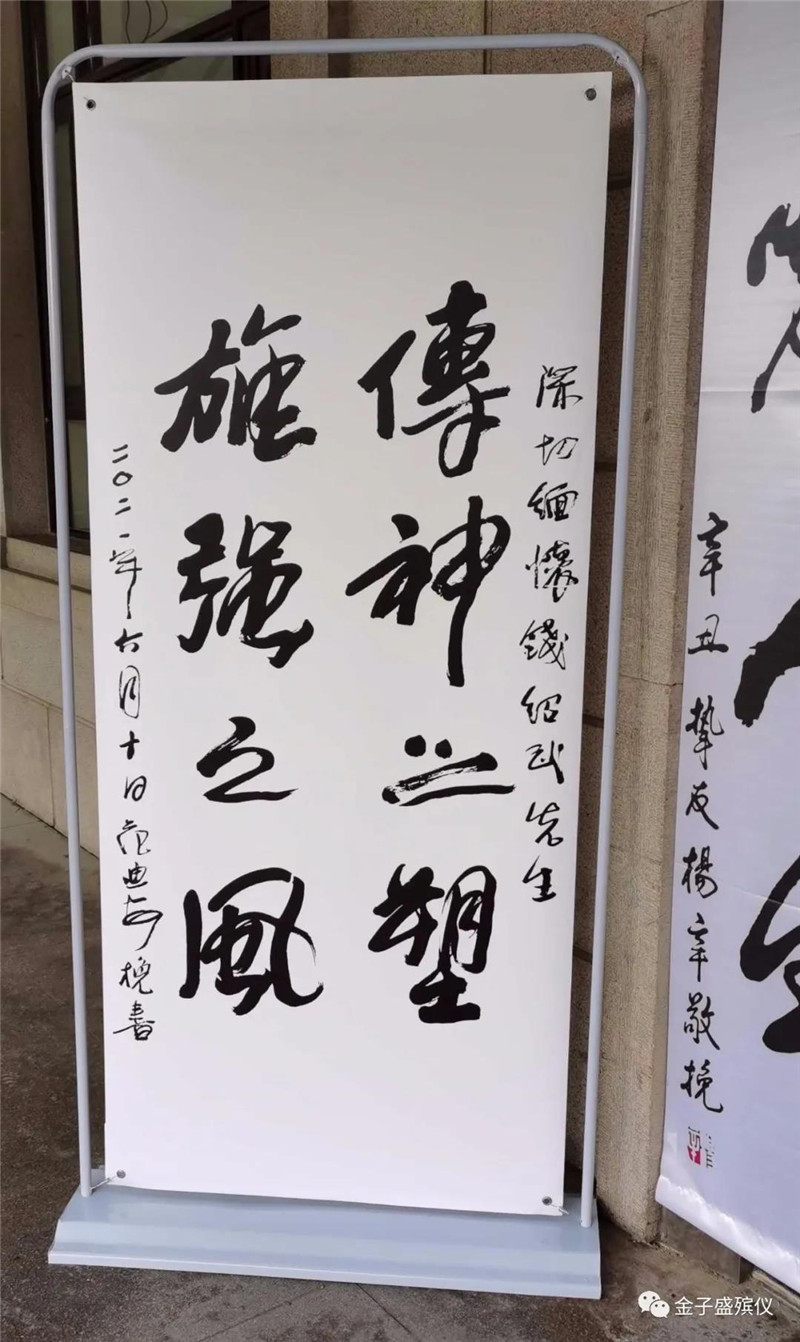 深切缅懷錢绍武先生
傳神之塑
雄强之風
二〇二一年六月十日范迪安挽書
辛丑 摯友楊辛敬挽
金子盛殡仪